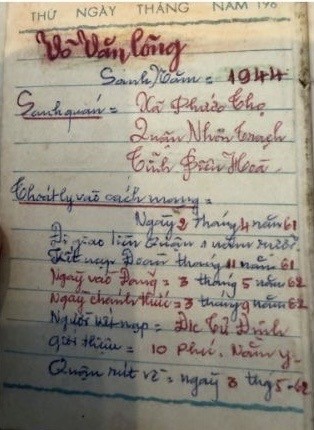 THỨ NGÀY THÁNG NĂM 196
Võ Văn Công
Sanh Năm = 1944
Sanh quán = Xã Phước Thọ
Quận Nhơn Trạch
Tỉnh Biên Hoà.
Thoát ly vào cách mạng =
Ngày 2 tháng 4 năm 61
Đi giao liên Quận 1 năm rưỡi.
Kết nạp Đoàn tháng 11 năm 61
Ngày vào Đảng = 3 tháng 5 năm 62
Ngày chánh thức = 3 tháng 9 năm 62
Người kết nạp = Đ/c Tư Đình
giới thiệu = 10 Phú. Năm y-
Quận rút về = ngày 3 thg 5-62